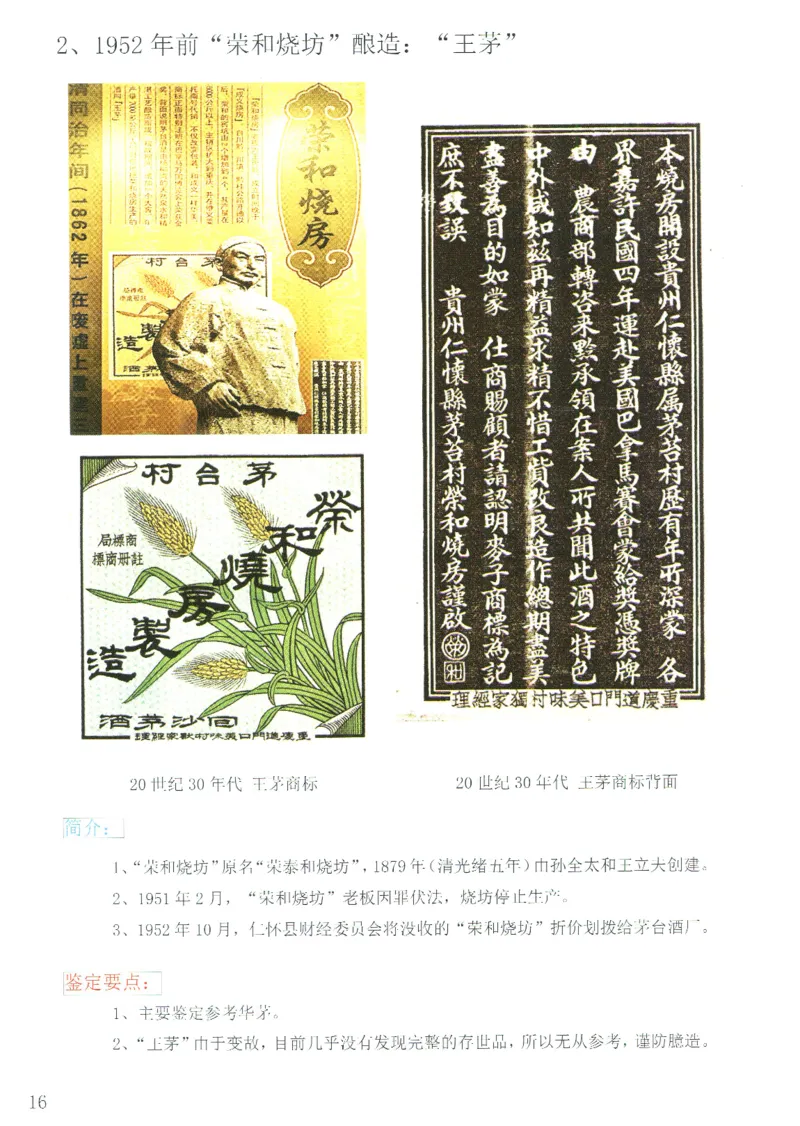 2、1952年前“荣和烧坊”酿造：“王茅”
荣和烧房
清同治年间(1862年)在废墟上重建三
村台茅
造
製
酒茅
村台茅
局標商
標商冊註
榮和燒房製造
酒茅沙回
理經家獨村味美口門道慶重
本燒房開設貴州仁懷縣属茅苔村歷有年所深蒙 各
界嘉許民國四年運赴美國巴拿馬賽會蒙給獎憑獎牌
由 農商部轉咨来黔承領在案人所共聞此酒之特色
中外咸知茲再精益求精不惜工貲改良造作總期盡美
盡善為目的如蒙 仕商賜顧者請認明麥子商標為記
庶不致誤 貴州仁懷縣茅苔村榮和燒房謹啟
理經家獨村味美口門道慶重
20世纪30年代 王茅商标
20世纪30年代 王茅商标背面
简介：
1、“荣和烧坊”原名“荣泰和烧坊”，1879年（清光绪五年）由孙全太和王立夫创建。
2、1951年2月，“荣和烧坊”老板因罪伏法，烧坊停止生产。
3、1952年10月，仁怀县财经委员会将没收的“荣和烧坊”折价划拨给茅台酒厂。
鉴定要点：
1、主要鉴定参考华茅。
2、“王茅”由于变故，目前几乎没有发现完整的存世品，所以无从参考，谨防臆造。
16